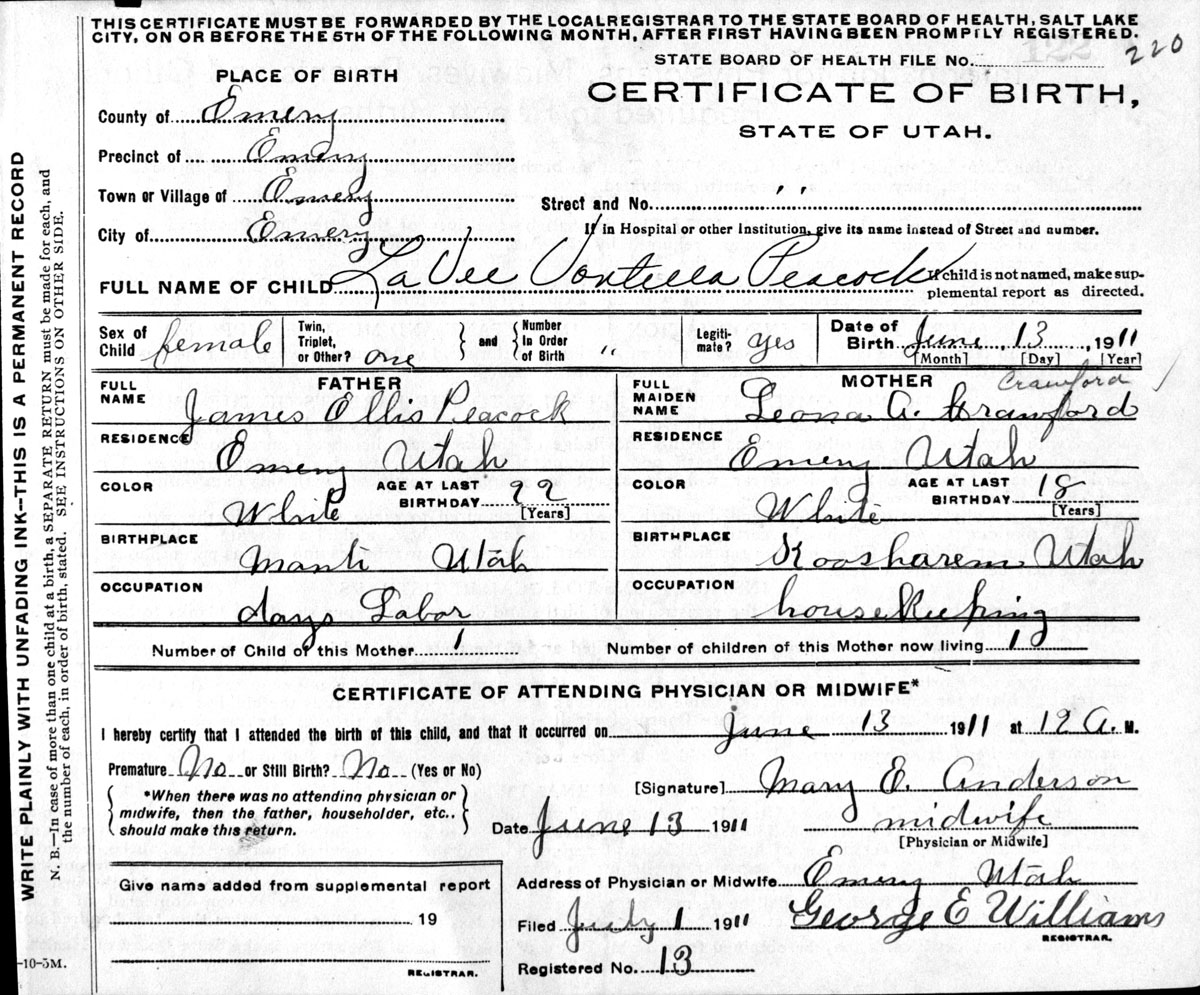 THIS CERTIFICATE MUST BE FORWARDED BY THE LOCALREGISTRAR TO THE STATE BOARD OF HEALTH, SALT LAKE
CITY, ON OR BEFORE THE 5TH OF THE FOLLOWING MONTH, AFTER FIRST HAVING BEEN PROMPTLY REGISTERED.
220
STATE BOARD OF HEALTH FILE No.
PLACE OF BIRTH
CERTIFICATE OF BIRTH,
STATE OF UTAH.
County of Emery
Precinct of Emery
Town or Village of Emery
Street and No. " "
City of Emery
If in Hospital or other Institution, give its name instead of Street and number.
FULL NAME OF CHILD LaVee Peacock
If child is not named, make sup-
plemental report as directed.
Sex of Child female
Twin, Triplet, or Other? one and Number In Order of Birth "
Legiti-mate? yes
Date of Birth June 13, 1911
[Month] [Day] [Year]
FATHER
FULL NAME James Ellis Peacock
RESIDENCE Emery Utah
COLOR White AGE AT LAST BIRTHDAY 22 [Years]
BIRTHPLACE Manti Utah
OCCUPATION days Labor
MOTHER Crawford
FULL MAIDEN NAME Leona A. Crawford
RESIDENCE Emery Utah
COLOR White AGE AT LAST BIRTHDAY 18 [Years]
BIRTHPLACE Koosharem Utah
OCCUPATION housekeeping
Number of Child of this Mother 1 Number of children of this Mother now living 1
CERTIFICATE OF ATTENDING PHYSICIAN OR MIDWIFE*
I hereby certify that I attended the birth of this child, and that it occurred on June 13 1911 at 12 A. M.
Premature No or Still Birth? No (Yes or No)
[Signature] Mary E. Anderson
*When there was no attending physician or
midwife, then the father, householder, etc.,
should make this return.
Date June 13 1911
midwife
[Physician or Midwife]
Give name added from supplemental report
19
REGISTRAR.
Address of Physician or Midwife Emery Utah
Filed July 1 1911 George E Williams
REGISTRAR.
Registered No. 13
-10-5M.
WRITE PLAINLY WITH UNFADING INK—THIS IS A PERMANENT RECORD
N. B.—In case of more than one child at a birth, a SEPARATE RETURN must be made for each, and
the number of each, in order of birth, stated. SEE INSTRUCTIONS ON OTHER SIDE.